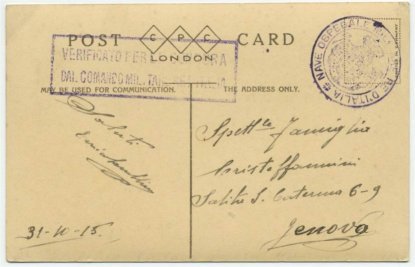 POST CPC CARD
LONDON
VERIFICATO PER
DAL COMANDO MIL.
MAY BE USED FOR COMMUNICATION.
THE ADDRESS ONLY.
NAVE OSPEDALE
RE D'ITALIA
Saluti
31-10-15.
Spett.le Famiglia
Cristoffanini
Salita S. Caterina 6-9
Genova